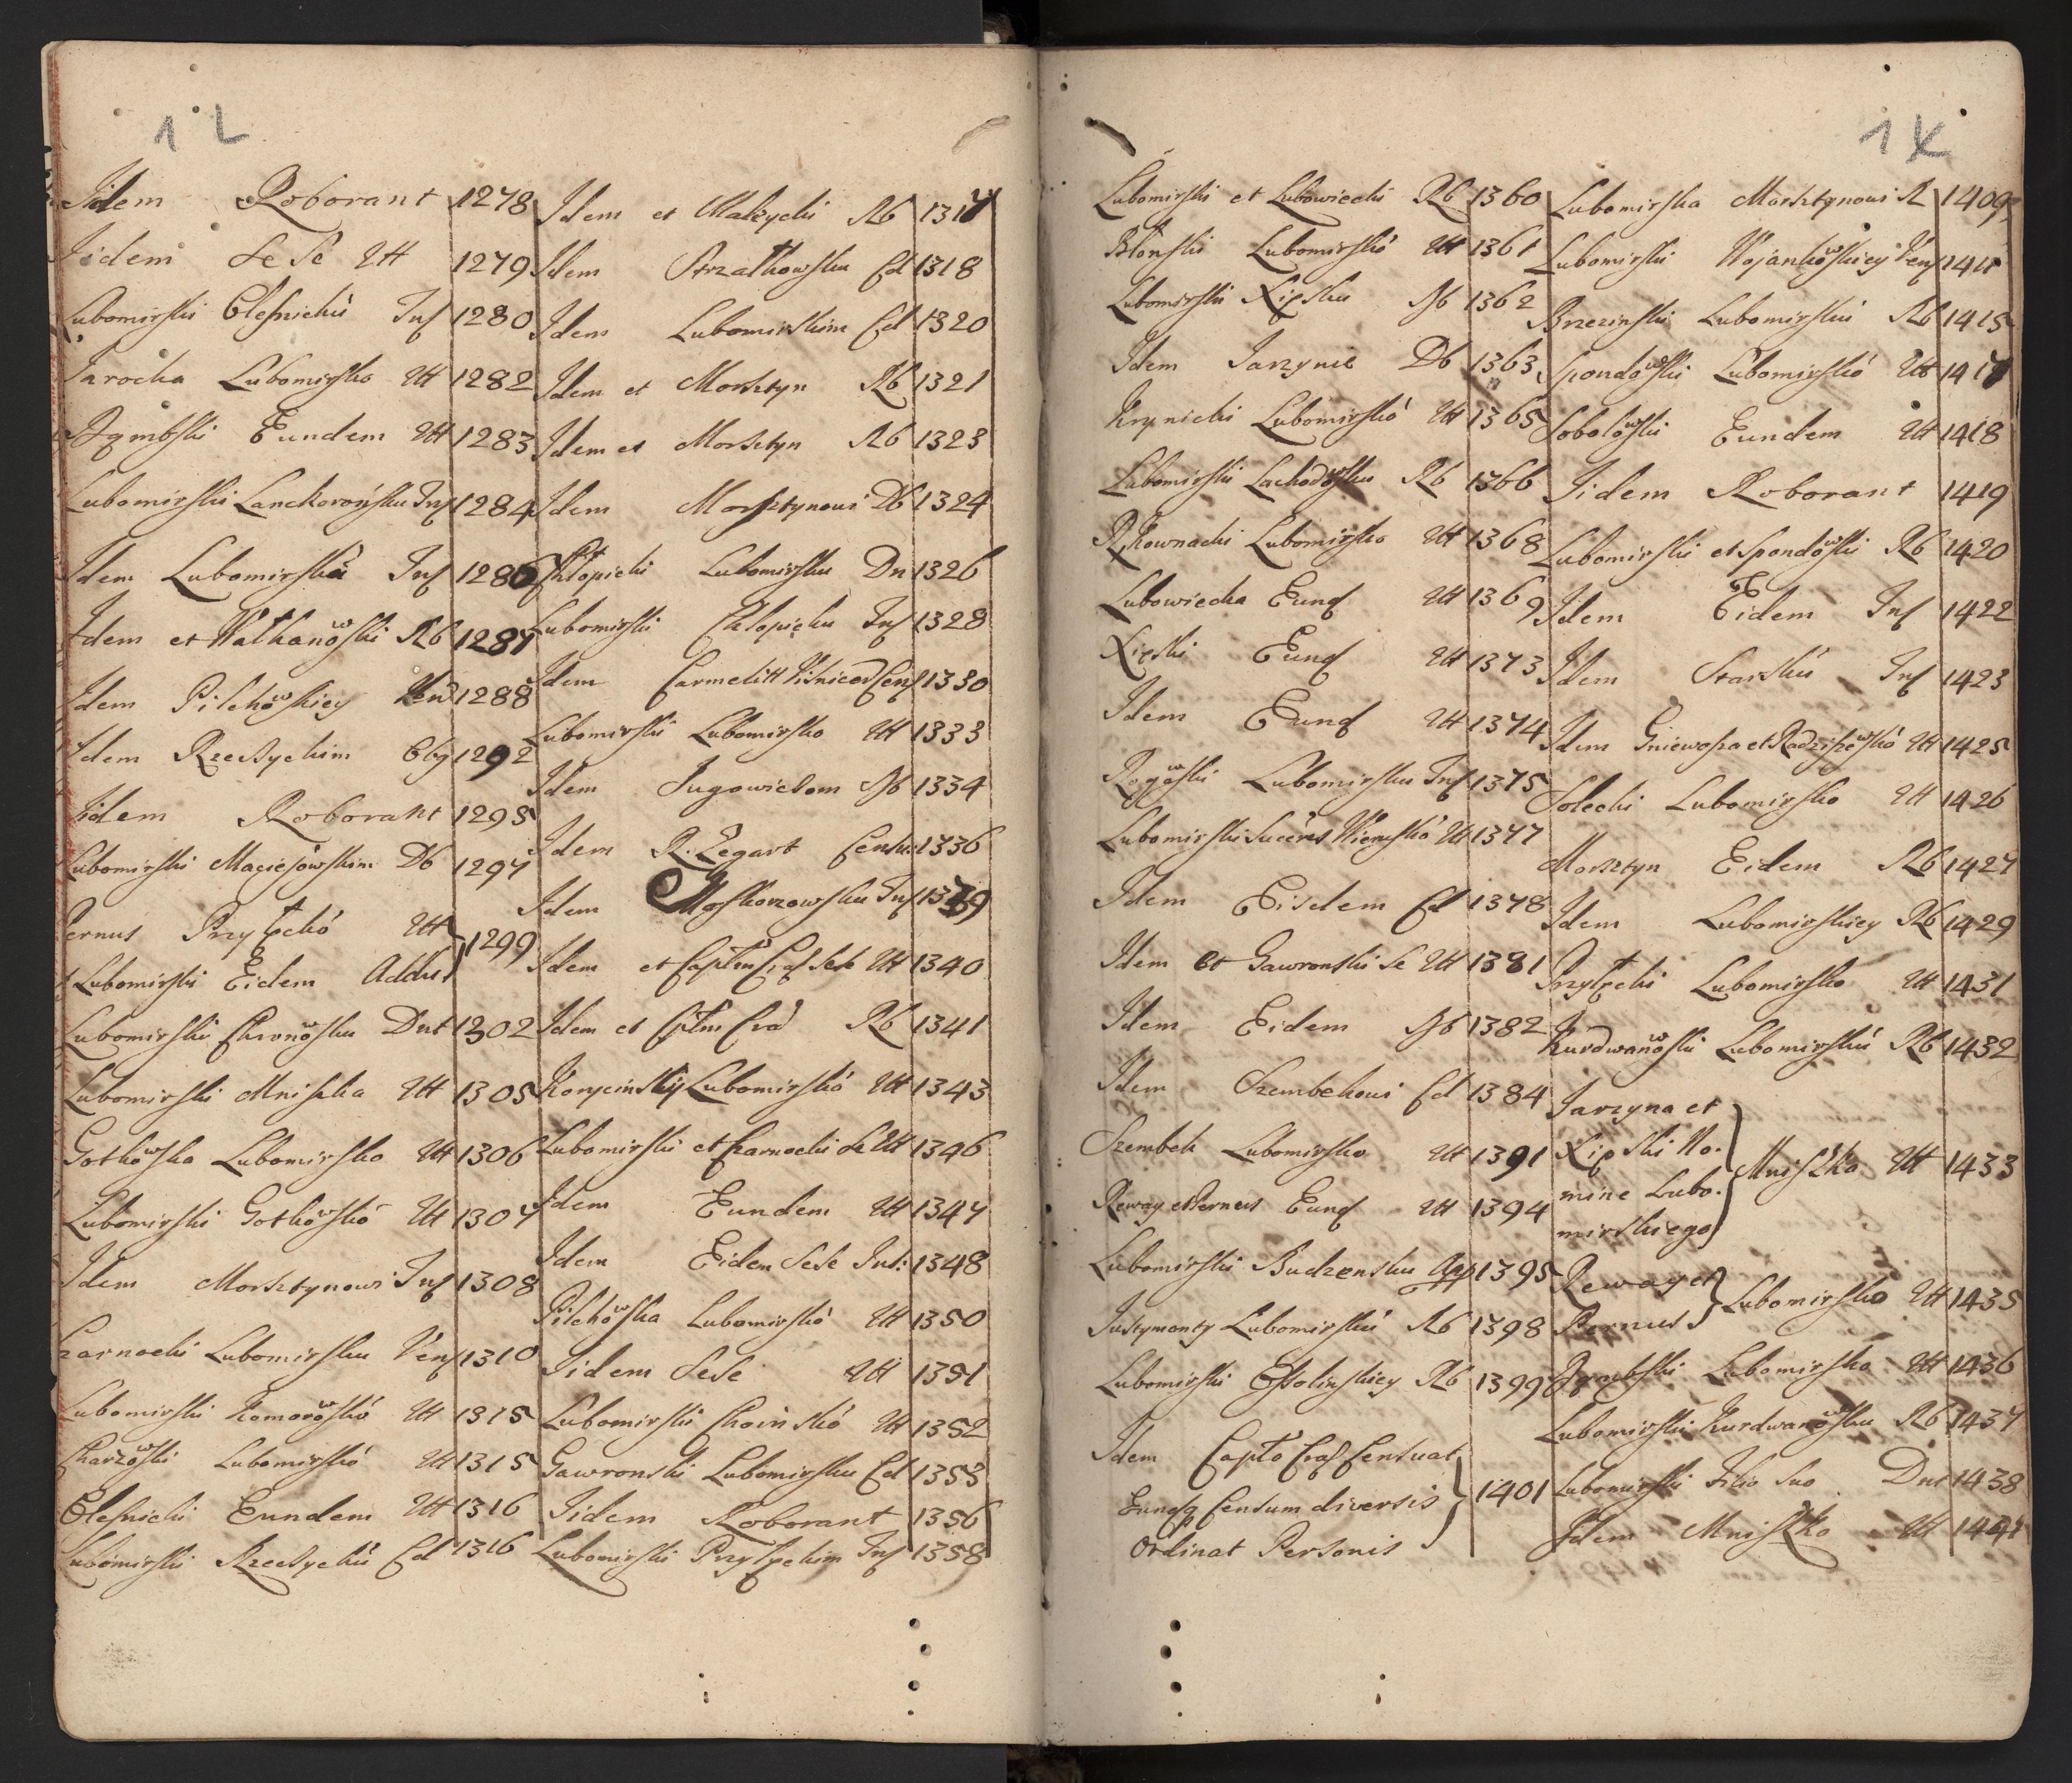 1 L
Iidem Roborant 1278
Iidem Se Se Utt 1279
Lubomirski Olesnickū Inf 1280
Jarocka Lubomirsko Utt 1282
Dęmbski Eundem Utt 1283
Lubomirski Lanckorońsku Inf 1284
Idem Lubomirskā Inf 1286
Idem et Wałkanowski Rb 1287
Idem Pilchowskiey 1288
Idem Rzeszyckim Obg 1292
Iidem Roborant 1295
Lubomirski Macieiowskim Db 1297
Pernus Przyłęckó Utt
Lubomirski Eidem Addit 1299
Lubomirski Chronowsku Dnt 1302
Lubomirski Mniszka Utt 1305
Gotkowska Lubomirsko Utt 1306
Lubomirski Gotkowskó Utt 1307
Idem Morsztynowi Inf 1308
Czarnocki Lubomirsku Ven 1310
Lubomirski Komorowskó Utt 1315
Charzowski Lubomirskó Utt 1315
Olesnicki Eundem Utt 1316
Lubomirski Rzeszyckū Cd 1316
Idem et Małzycki Rb 1317
Idem Strzałkowsku Cd 1318
Idem Lubomirskim Cd 1320
Idem et Morsztyn Rb 1321
Idem et Morsztyn Rb 1323
Idem Morsztynowi Db 1324
Chłopicki Lubomirsku Dn 1326
Lubomirski Chłopicku Inf 1328
Idem Carmelitt Wisnicen Cens 1330
Lubomirski Lubomirsko Utt 1333
Idem Jugowiczom Ob 1334
Idem R. Zegart Censu 1336
Idem Moskorzowsku Inf 1339
Idem et Captm Crac Sese Utt 1340
Idem et Cptm Cra Rb 1341
Korycinskij Lubomirskó Utt 1343
Lubomirski et Czarnocki Se Utt 1346
Idem Eundem Utt 1347
Idem Eidem Sese Ins: 1348
Pilchowska Lubomirskó Utt 1350
Iidem Sese Utt 1351
Lubomirski Choinskó Utt 1352
Gawronski Lubomirsku Cd 1353
Iidem Roborant 1356
Lubomirski Przyłęckim Inf 1358
1 K
Lubomirski et Lubowiecki Rb 1360
Błonski Lubomirskó Utt 1361
Lubomirski Lipsku Ob 1362
Idem Jarzynie Db 1363
Krynicki Lubomirskó Utt 1365
Lubomirski Lachodowsku Rb 1366
R. Kownacki Lubomirsko Utt 1368
Lubowiecka Eund Utt 1369
Lipski Eund Utt 1373
Idem Eund Utt 1374
Rogowski Lubomirsku Inf 1375
Lubomirski Succeres Wiemskó Utt 1377
Idem Eisdem Cd 1378
Idem et Gawronski Se Utt 1381
Idem Eidem Ob 1382
Idem Szembekowi Cd 1384
Szembek Lubomirsko Utt 1391
Reway et Pernus Eund Utt 1394
Lubomirski Budzensku App 1395
Justymonty Lubomirskū Rb 1398
Lubomirski Ossolinskiey Rb 1399
Idem Capto Crac Censuat
Eundq Censum diversis 1401
Ordinat Personis
Lubomirska Morsztynowi R 1409
Lubomirski Wojankowskiey Ven 1411
Brzezinski Lubomirskū Rb 1415
Spondowski Lubomirskó Utt 1417
Sobolowski Eundem Utt 1418
Iidem Roborant 1419
Lubomirski et Spondowski Rb 1420
Idem Eidem Inf 1422
Idem Starskū Inf 1423
Idem Gniewosza et Radziszewskó Utt 1425
Solecki Lubomirsko Utt 1426
Morsztyn Eidem Rb 1427
Idem Lubomirskiey Rb 1429
Przyłęcki Lubomirsko Utt 1431
Kurdwanowski Lubomirskū Rb 1432
Jarzyna et
Lipski No-
mine Lubo- Mniszka Utt 1433
mirskiego
Reway et
Pernus Lubomirsko Utt 1435
Dęmbski Lubomirska Utt 1436
Lubomirski Kurdwanowsku Rb 1437
Lubomirski Filio Suo Dnt 1438
Idem Mniszko Utt 1441